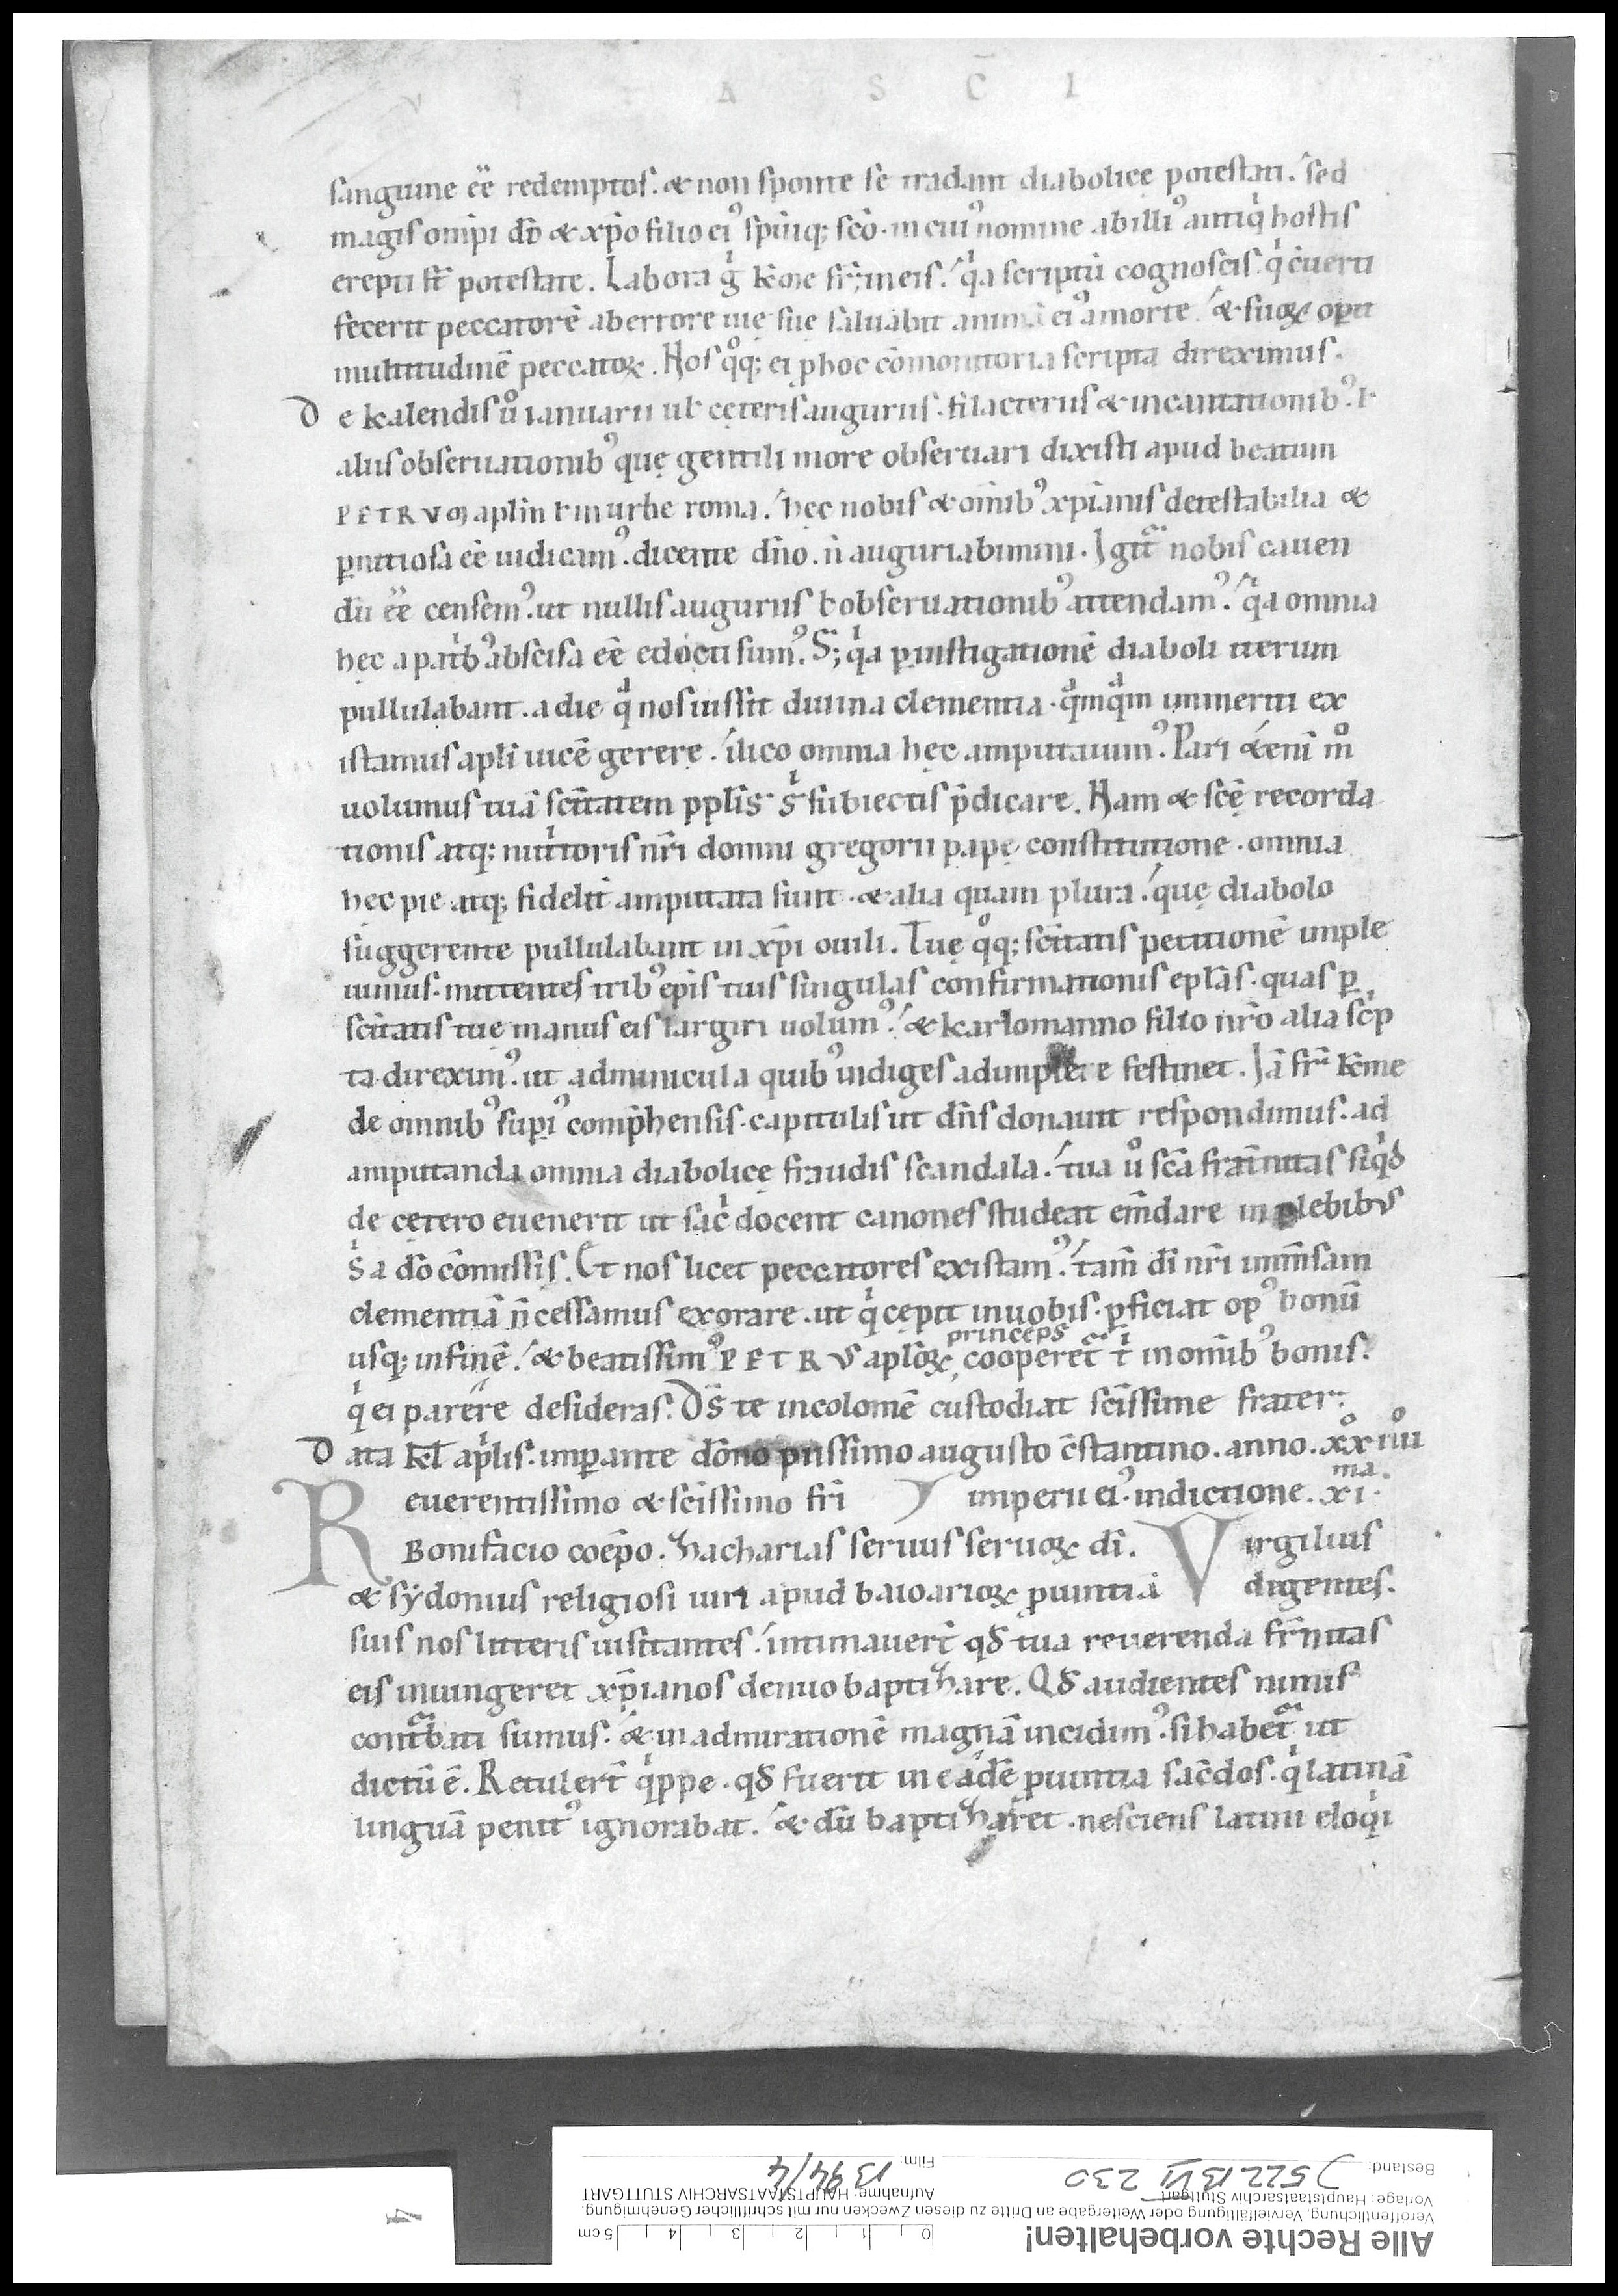 A S C̄ I
sanguine ēē redemptos. & non sponte se tradant diabolicę potestati. sed
magis om̄pi dō & xp̄o filio ei᾽ sp̄uiq; scō. in cui᾽ nomine ab illi᾽ antiq̍ hostis
erepti st̄ potestate. Labora g̍ k̄me fr̄; in eis. q̍a scriptū cognoscis. q̍ c̄uerti
fecerit peccatorē ab errore uię suę saluabit animā ei᾽ a morte. & suoꝝ opit
multitudinē peccatoꝝ. Hos qͦq; ei p hoc cōmonitoria scripta direximus.
De kalendis uͦ ianuarii ut cęteris auguriis. filacteriis & incantationib᾽. ł
aliis obseruationib᾽ quę gentili more obseruari dixisti apud beatum
PETRVM apl̄m ł in urbe roma. hęc nobis & om̄ib᾽ xp̄ianis detestabilia &
ꝑnitiosa ēē iudicam᾽. dicente dn̄o. n̄ auguriabimini. Igit̄ nobis cauen
dū ēē censem᾽. ut nullis auguriis ł obseruationib᾽ attendam᾽. q̍a omnia
hęc a patrib᾽ abscisa ēē edocti sum᾽. S; q̍a ꝑ instigationē diaboli iterum
pullulabant. a die q̍ nos iussit diuina clementia. qͣmqͣm immeriti ex
istamus apl̄i uicē gerere. ilico omnia hęc amputauim᾽. Pari &enī mͦ
uolumus tuā scītatem pplis s̍ subiectis p̄dicare. Nam & scę̄ recorda
tionis atq; nutritoris nr̄i domni gregorii papę constitutione. omnia
hęc pie atq; fidelit̄ amputata sunt. & alia quam plura. quę diabolo
suggerente pullulabant in xp̄i ouili. Tuę qͦq; scītatis petitionē imple
uimus. mittentes trib᾽ ep̄is tuis singulas confirmationis epl̄as. quas ꝑ
scītatis tuę manus eis largiri uolum᾽. & karlomanno filio nr̄o alia scp̍
ta direxim᾽. ut adminicula quib᾽ indiges adimplere festinet. Iā fr̄ k̄me
de omnib᾽ supi᾽ comp̄hensis. capitulis ut dn̄s donauit respondimus. ad
amputanda omnia diabolicę fraudis scandala. tua uͦ scā frat̄nitas siq̍d
de cętero euenerit ut sac̍ docent canones studeat em̄dare in plebibus
s̍ a dō cōmissis. Et nos licet peccatores existam᾽. tam̄ dī nr̄i imm̄sam
clementiā n̄ cessamus exorare. ut q̍ cępit in uobis. ꝑficiat op᾽ bonū
usq; in finē. & beatissim᾽ PETRVS apl̄oꝝ princeps cooperet̄ t̍ in om̄ib᾽ bonis.
q̍ ei parere desideras. D̄s te incolomē custodiat scīssime frater.
Data kl̄ ap̍lis. imꝑante dōno piissimo augusto c̄stantino. anno. xxͦiiiiͦ
Reuerentissimo & scīssimo fr̄i imperii ei᾽. indictione. xi ma.
Bonifacio coep̄o. Zacharias seruus seruoꝝ dī. Virgilius
& sydonius religiosi uiri apud baioarioꝝ ꝓuintiā degentes.
suis nos litteris uisitantes. intimauer̄t qd̄ tua reuerenda fr̄nitas
eis iniungeret xp̄ianos denuo baptizare. Qd̄ audientes nimis
cont̄bati sumus. & in admirationē magnā incidim᾽. si habet̄ ut
dictū ē. Retuler̄t q̍ppe. qd̄ fuerit in eadē ꝓuintia sac̄dos. q̍ latinā
linguā penit᾽ ignorabat. & dū baptizaret. nesciens latini eloq̍i
Alle Rechte vorbehalten!
Veröffentlichung, Vervielfältigung oder Weitergabe an Dritte zu diesen Zwecken nur mit schriftlicher Genehmigung.
Vorlage: Hauptstaatsarchiv Stuttgart
Aufnahme: HAUPTSTAATSARCHIV STUTTGART
Bestand: J 522 B VI 230
Film: 1394/4
0 1 2 3 4 5 cm
4